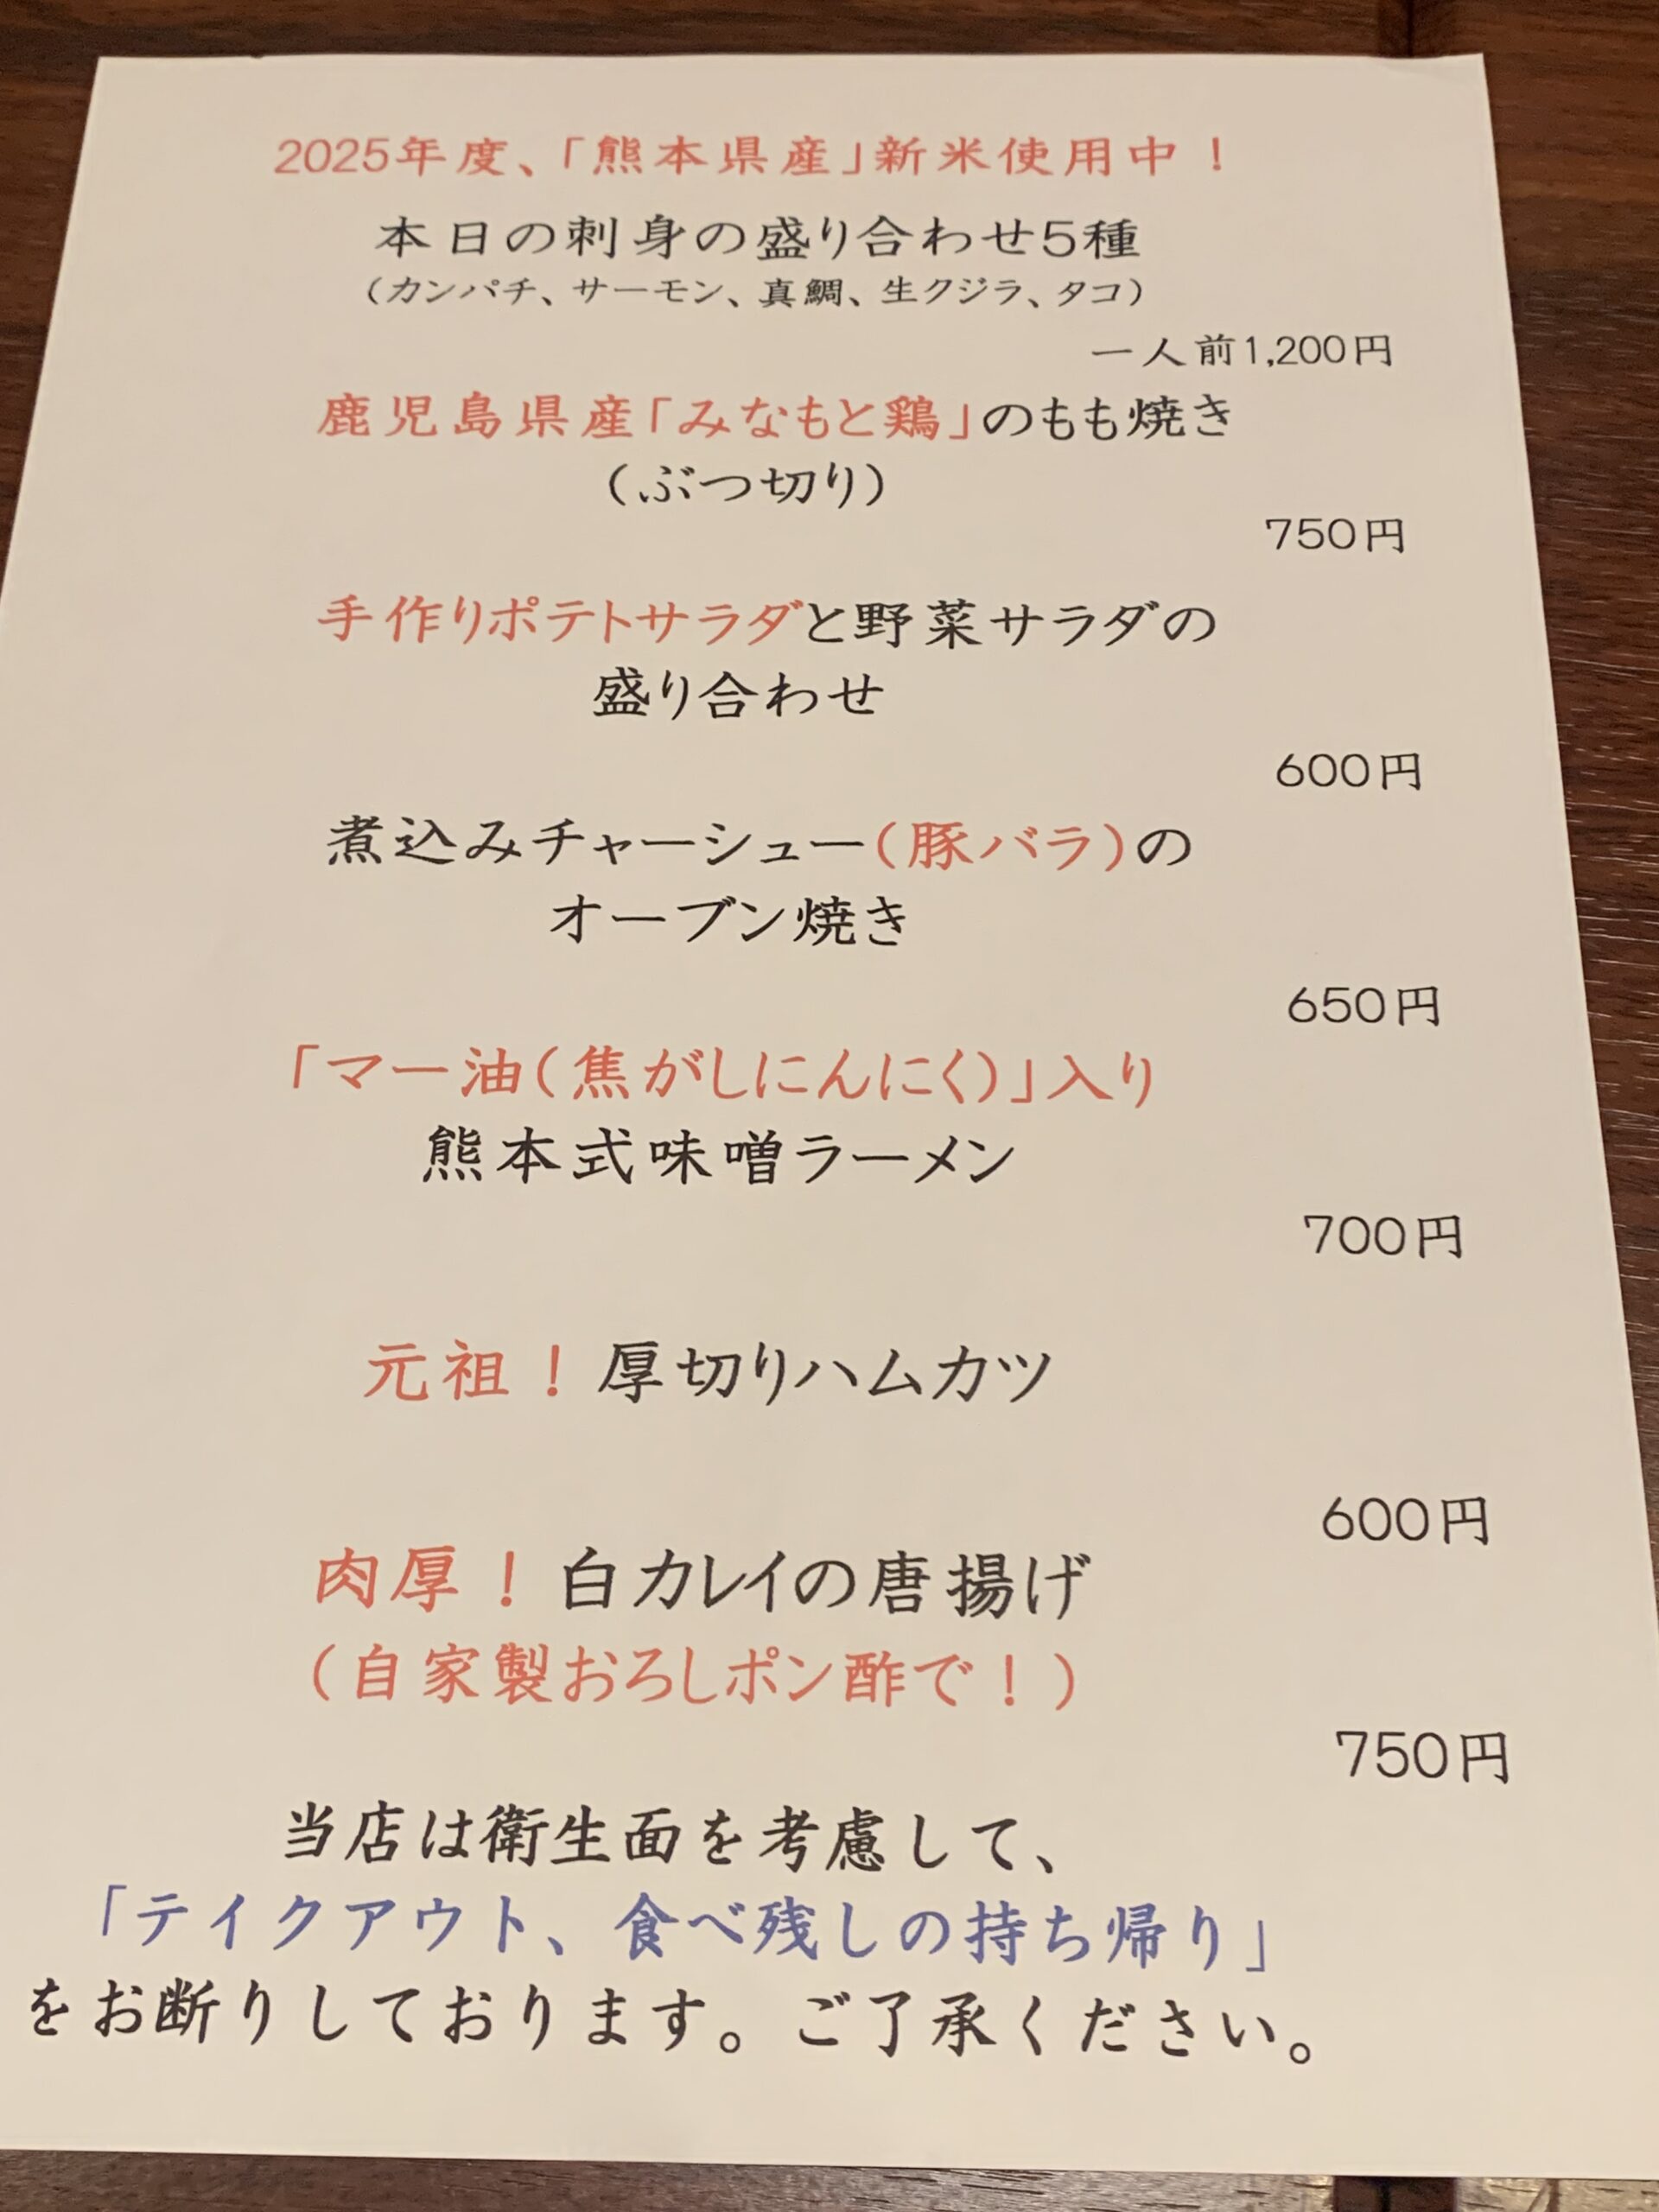 2025年度、「熊本県産」新米使用中！
本日の刺身の盛り合わせ5種
（カンパチ、サーモン、真鯛、生クジラ、タコ）
一人前1,200円
鹿児島県産「みなもと鶏」のもも焼き
（ぶつ切り）
750円
手作りポテトサラダと野菜サラダの
盛り合わせ
600円
煮込みチャーシュー（豚バラ）の
オーブン焼き
650円
「マー油（焦がしにんにく）」入り
熊本式味噌ラーメン
700円
元祖！厚切りハムカツ
600円
肉厚！白カレイの唐揚げ
（自家製おろしポン酢で！）
750円
当店は衛生面を考慮して、
「テイクアウト、食べ残しの持ち帰り」
をお断りしております。ご了承ください。